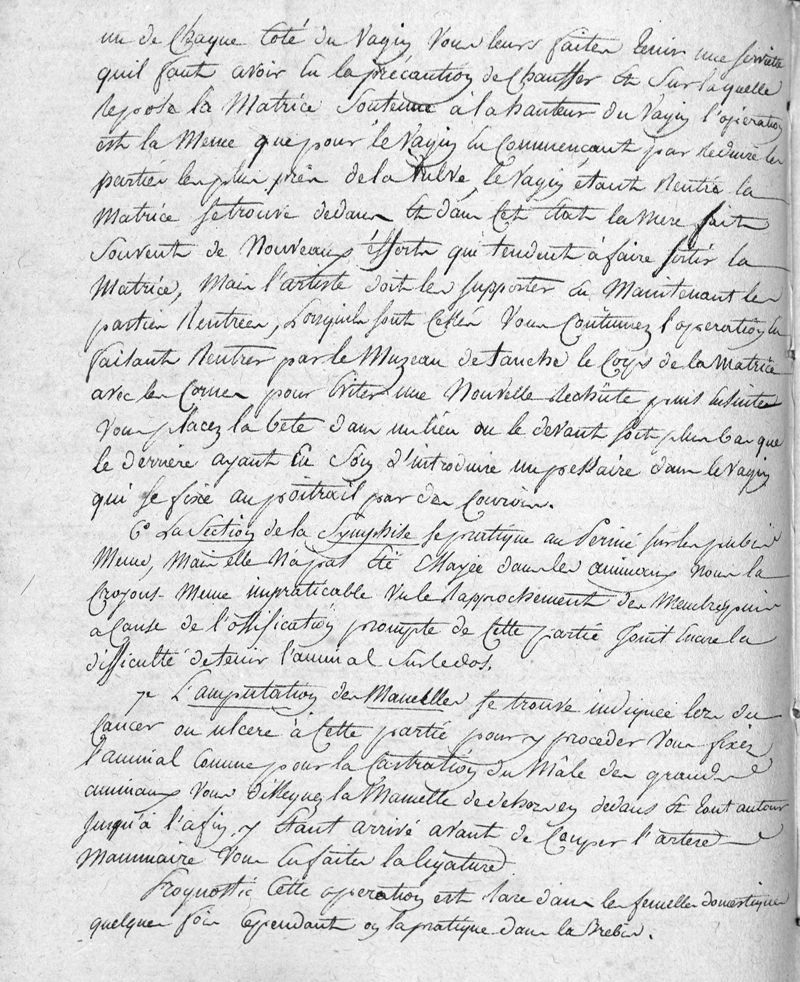 un de Chaque Coté du Vagin Vous leurs faites tenir une serviete
quil faut avoir Eu la précaution de Chauffer Et Sur laquelle
Repose la Matrice Soutenue à la hauteur du Vagin l'opération
est la Meme que pour le Vagin En Commencant par Reduire les
parties les plus près de la Vulve, le Vagin étant Rentré la
Matrice se trouve dedans Et dans Cet Etat la Mere fait
Souvent de Nouveaux éfforts qui tendent à faire sortir la
Matrice, Mais l'artiste doit les supporter En Maintenant les
parties Rentrées, Lorsquils sont Cessés Vous Continuez l'operation En
faisant Rentrer par le Muzeau de tanche le Corps de la Matrice
avec les Cornes pour Eviter une Nouvelle Rechûte puis Ensuite
Vous placez la bete dans un lieu ou le devant soit plus bas que
le derriere ayant Eu Soin d'introduire un pessaire dans le Vagin
qui se fixe au poitrail par des Couroies.
6° La Section de la Symphise se pratique au Periné sur les pubis
Meme, Mais elle N'a pas Eté Essayée dans les animaux Nous la
Croyons Meme impraticable Vu le Rapprochement des Membres puis
a Cause de l'ossification prompte de Cette partie joint Encore la
difficulté de tenir l'animal Sur le dos.
7e L'amputation des Mamelles se trouve indiquée lors du
Cancer ou ulcere à Cette partie pour y proceder Vous fixez
l'animal Comme pour la Castration du Mâle des grands
animaux Vous dissequez la Mamelle de dehors en dedans Et tout autour
jusqu'à l'afin, y Etant arrivé avant de Couper l'artere
Mammaire Vous En faites la ligature
Prognostic Cette operation est Rare dans les femelles domestiques
quelques fois Cependant on la pratique dans la Brebis.